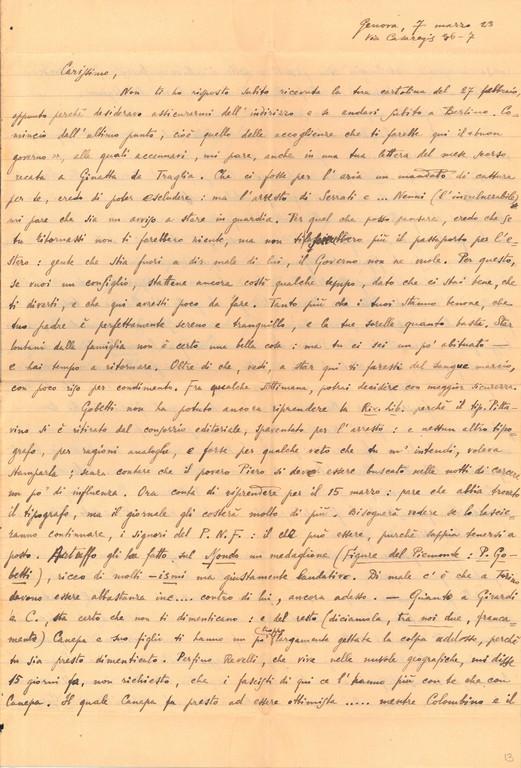 Genova, 7 marzo 23
Via Casaregis 36-7
Carissimo,
Non ti ho risposto subito ricevuta la tua cartolina del 27 febbraio,
appunto perchè desideravo assicurarmi dell'indirizzo e se andavi subito a Berlino. Co-
mincio dall'ultimo punto, cioè quello delle accoglienze che ti farebbe qui il «buon
governo», alle quali accennavi, mi pare, anche in una tua lettera del mese scorso
recata a Ginatta da Traglia. Che ci fosse per l'aria un mandato di cattura
per te, credo di poter escludere: ma l'arresto di Serrati e ... Nenni (l'invulnerabile)
mi pare che sia un avviso a stare in guardia. Per quel che posso pensare, credo che se
tu ritornassi non ti farebbero niente, ma non ti più il passaporto per l'e-
stero: gente che stia fuori a dir male di lui, il Governo non ne vuole. Per questo,
se vuoi un consiglio, stattene ancora costì qualche tempo, dato che ci stai bene, che
ti diverti, e che qui avresti poco da fare. Tanto più che i tuoi stanno benone, che
tuo padre è perfettamente sereno e tranquillo, e le tue sorelle quanto basta. Star
lontani dalla famiglia non è certo una bella cosa: ma tu ci sei un po' abituato —
e hai tempo a ritornare. Oltre di che, vedi, a star qui ti faresti del sangue marcio,
con poco riso per condimento. Fra qualche settimana, potrai decidere con maggior sicurezza.
Gobetti non ha potuto ancora riprendere la Riv. Lib. perchè il tip. Pitta-
vino si è ritirato dal consorzio editoriale, spaventato per l'arresto: e nessun altro tipo-
grafo, per ragioni analoghe, e forse per qualche veto che tu m'intendi, voleva
stamparla; senza contare che il povero Piero si deve essere buscato nelle notti di carcere
un po' di influenza. Ora conta di riprendere per il 15 marzo: pare che abbia trovato
il tipografo, ma il giornale gli costerà molto di più. Bisognerà vedere se lo lasce-
ranno continuare, i signori del P.N.F.: il che può essere, purchè sappia tenersi a
posto. gli ha fatto sul Mondo un medaglione (Figure del Piemonte: P. Go-
betti), ricco di molti -ismi ma giustamente laudativo. Di male c'è che a Torino
devono essere abbastanza inc.... contro di lui, ancora adesso. — Quanto a Girardi
e C. sta certo che non ti dimenticano: e del resto (diciamola, tra noi due, franca-
mente) Canepa e suo figlio ti hanno un largamente gettata la colpa addosso, perchè
tu sia presto dimenticato. Perfino Revelli, che vive nelle nuvole geografiche, mi disse
15 giorni fa, non richiesto, che i fascisti di qui ce l'hanno più con te che con
Canepa. Il quale Canepa fa presto ad essere ottimista ..... mentre Colombino e il
13